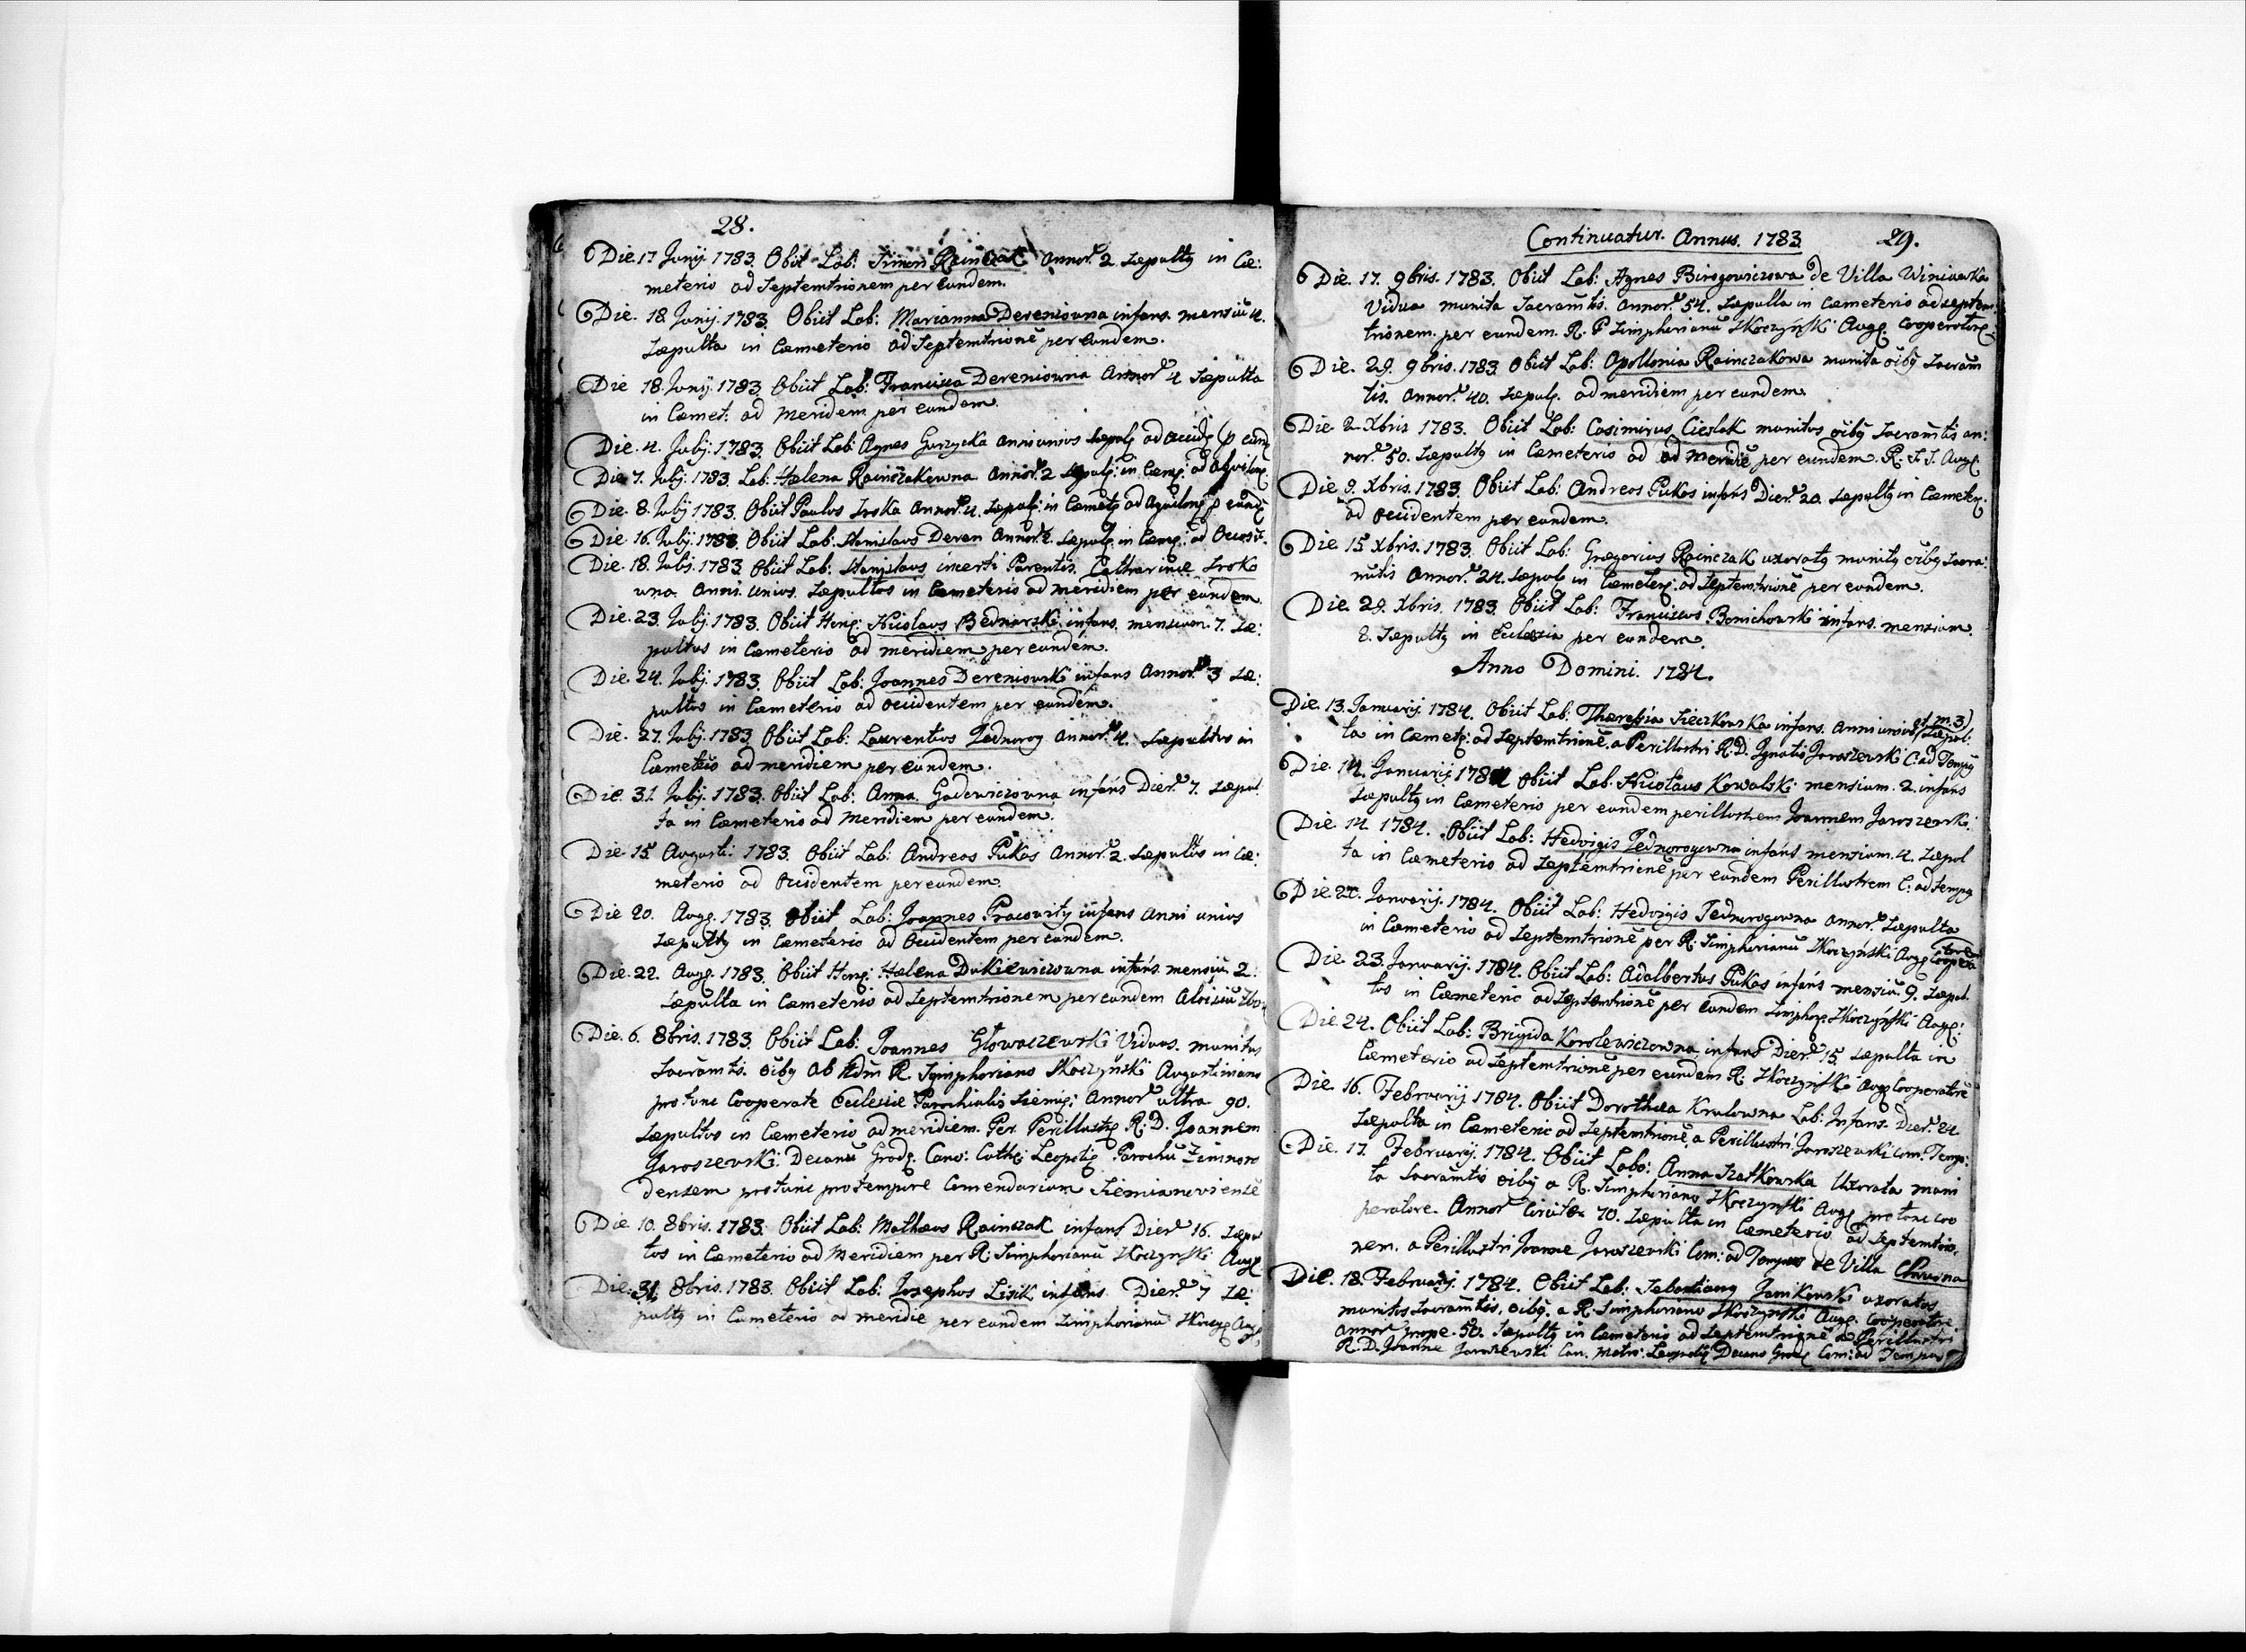 28.
Die 17 Junij 1783. Obiit Lab: Simon Rainczak Annor. 2. Sepultg in Cæ:
meterio ad Septemtrionem per Eundem.
Die. 18. Junij. 1783. Obiit Lab: Marianna Dereniowna infans. mensiũ 4.
Sæpulta in Cæmeterio ad Septemtrionẽ per Eundem.
Die 18. Junij. 1783. Obiit Lab: Francisca Dereniowna Annor. 4 Sæpulta
in Cæmet: ad Meridem per eundem.
Die. 4. Julij. 1783. Obiit Lab: Agnes Gurzycka anni unius Sæpul. ad occid. p eund.
Die 7. Julij. 1783. Lab: Helena Rainczakowna Annor. 2 Sepul: in Cæm: ad Aquilon.
Die. 8. Julij 1783. Obiit Paulus Sroka Annor. 4. Sæpul: in Cæmet ad Aquilone p eund
Die. 16. Julij. 1783. Obiit Lab: Stanislaus Deren Annor. 2. Sæpul. in Cæm: ad
Die. 18. Julij. 1783. Obiit Lab: Stanislaus incerti Parentis. Catharinæ Sroko
wna. Anni. unius. Sæpultus in Cæmeterio ad meridiem per eundem.
Die. 23. Julij. 1783. Obiit Hon: Nicolaus Bednarski. infans. mensium. 7. Sæ:
pultus in Cæmeterio ad meridiem per eundem.
Die. 24. Julij. 1783. Obiit Lab: Joannes Dereniowski infans Annor. 3 Sæ:
pultus in Cæmeterio ad occidentem per eundem.
Die. 27. Julij. 1783. Obiit Lab: Laurentius Jednorog Annor. 4. Sæpultus in
Cæmeterio ad meridiem per eundem.
Die. 31. Julij. 1783. Obiit Lab: Anna. Godewiczowna infans Dier. 7. Sæpul:
ta in Cæmeterio ad Meridiem per eundem.
Die 15 Augusti. 1783. Obiit Lab: Andreas Pukas Annor. 2. Sæpultus in Cæ:
meterio ad Occidentem per eundem.
Die 20. Aug. 1783. Obiit Lab: Joannes Pracowity infans Anni unius
Sæpultg in Cæmeterio ad Occidentem per eundem.
Die. 22. Aug. 1783. Obiit Hon: Helena Dukiewiczowna infans. mensiũ. 2.
Sæpulta in Cæmeterio ad Septemtrionem per eundem Aloisiũ
Die. 6. 8bris. 1783. Obiit Lab: Joannes Głowaczewski Viduus. munitus
Sacramtis. oibg ab R. Simphoriano Skoczyński Augustiniano
protunc Cooperate Ecclesiæ Parochialis Annor ultra 90.
Sæpultus in Cæmeterio ad meridiem. Per Perillustrẽ R. D. Joannem
Jaroszewski. Decanũ Grod. Cano: Cath: Leopol. Parochũ Zimnowo
densem protunc pro tempore Comendarium Siemianoviensẽ
Die 10. 8bris. 1783. Obiit Lab: Mathæus Rainczak infans Dier. 16. Sæpul
tus in Cæmeterio ad Meridiem per R. Simphorianũ Skoczynski Aug.
Die. 31. 8bris. 1783. Obiit Lab: Josephus Lisik infans. Dier. 7 Sæ:
pultg in Cæmeterio ad meridiẽ per eundem Simphorianũ Skocz. Aug.
Continuatur. Annus. 1783. 29.
Die. 17. 9bris. 1783. Obiit Lab: Agnes Birogowiczowa de Villa Winiawka
Vidua munita Sacramtis. Annor. 54. Sæpulta in Cæmeterio ad septem
trionem. per eundem. R. P Simphorianũ Skoczyński Aug. Cooperatorẽ.
Die. 29. 9bris. 1783. Obiit Lab: Apollonia Rainczakowa munita oibg Sacram
tis. Annor. 40. Sæpul. ad meridiem per eundem.
Die 2 Xbris 1783. Obiit Lab: Casimirus Cieslak munitus oibg Sacramtis an:
nor. 50. Sæpultg in Cæmeterio ad ad meridiẽ per eundem. R. S. S. Aug.
Die 9. Xbris. 1783. Obiit Lab: Andreas Pukas infans Dier. 20. Sæpultg in Cæmeter.
ad occidentem per eundem.
Die 15 Xbris. 1783. Obiit Lab: Gregorius Rainczak uxoratg munitg oibg Sacra:
mtis Annor. 24. Sæpul. in Cæmeter. ad Septemtrionẽ per eundem.
Die. 29. Xbris. 1783. Obiit Lab: Franciscus Benichowski infans. mensium.
8. Sæpultg in Ecclesia per eundem.
Anno Domini. 1784.
Die. 13. Januarij. 1784. Obiit Lab: Theressia Sieczkowska infans. Anni unius et m. 3) Sæpul:
ta in Cæmet: ad Septemtrionẽ. a Perillustri R. D. Ignatio Jaroszewski C. ad Tempg
Die. 14. Januarij 1784 Obiit Lab. Nicolaus Kowalski mensium. 2. infans
Sæpultg in Cæmeterio per eundem perillustrem Joannem Jaroszewski.
Die. 14. 1784. Obiit Lab: Hedvigis Jednorogowna infans mensium. 4. Sæpul
ta in Cæmeterio ad Septemtrionẽ per eundem Perillustrem C: ad tempg
Die 22. Januarij. 1784. Obiit Lab: Hedvigis Jednorogowna Annor. Sæpulta
in Cæmeterio ad Septemtrionẽ per R: Simphorianũ Skoczyński Aug. Coopera torem
Die. 23. Januarij. 1784. Obiit Lab: Adalbertus Pukas infans mensiũ. 9. Sæpul.
tus in Cæmeterio ad Septemtrionẽ per eundem Simphor. Skoczyński Aug:
Die. 24. Obiit Lab: Brigida Korolewiczowna infans Dier. 15. Sæpulta in
Cæmeterio ad Septemtrionẽ per eundem R: Skoczynski Aug. Cooperatorẽ
Die. 16. Februarij 1784. Obiit Dorothea Krulowna Lab: Infans. Dier. 24.
Sæpulta in Cæmeterio ad Septemtrionẽ. a Perillustri Jaroszewski Com. Temp:
Die. 17. Februarij. 1784. Obiit Labo: Anna Szatkowska Uxorata muni
ta Sacramtis oibg a R. Simphoriano Skoczynski Aug. protunc Coo
peratore. Annor Circiter 70. Sæpulta in Cæmeterio ad Septemtrio.
nem. a Perillustri Joanne Jaroszewski Com: ad Tempus de Villa Chrusna
Die. 18. Februarij. 1784. Obiit Lab: Sebastiang Jamkowski uxoratus
munitus Sacramtis. oibg. a R. Simphoriano Skoczynski Aug. Cooperatore
Annor prope. 50. Sæpultg in Cæmeterio ad Septemtrionẽ a Perillustri
R. D. Joanne Jaroszewski Can. Metro: Leopol. Decano Grod. Com: ad Tempus